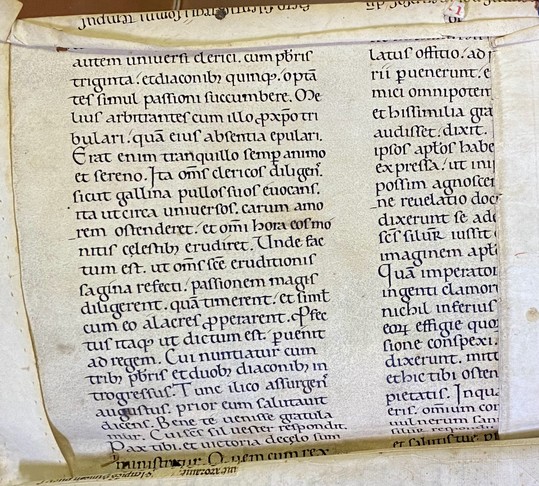 autem universi clerici. cum pbris
triginta. et diaconib; quinq;. optan
tes simul passioni succumbere. Me
lius arbitrantes cum illo p xpo tri
bulari. quā eius absentia epulari.
Erat enim tranquillo semp animo
et sereno. Ita om̄s clericos diligen̄.
sicut gallina pullos suos evocans.
ita ut circa universos. carum amo
rem ostenderet. et omi hora eos mo
nitis celestib; erudiret. Unde fac
tum est. ut om̄s scē eruditionis
sagina refecti. passionem magis
diligerent. quā timerent. et simł
cum eo alacres pperarent. Pfec
tus itaq; ut dictum est. puenit
ad regem. Cui nuntiatur cum
trib; pbris et duob; diaconib; in
trogressus. Tunc ilico assurgen̄
augustus. prior eum salutavit
dicens. Bene te venisse gratula
mur. Cui scs silvester respondit.
Pax tibi. et victoria de celo sum
ministretur. Quem cum rex
latus offitio. ad
rii puenerunt.
mici omnipoten
et his similia gra
audisset. dixit.
ipsos apłos habe
expressa. ut in
possim agnoscer
ne revelatio doc
dixerunt se ad
scs silvł iussit
imaginem apł
Quā imperator
ingenti clamor
nichil inferius
eoꝝ effigie quo
sione conspexi.
dixerunt. mitt
et hic tibi osten
pietatis. Inqua
eris. omium cor
vulnerum san
et salutis tue. p